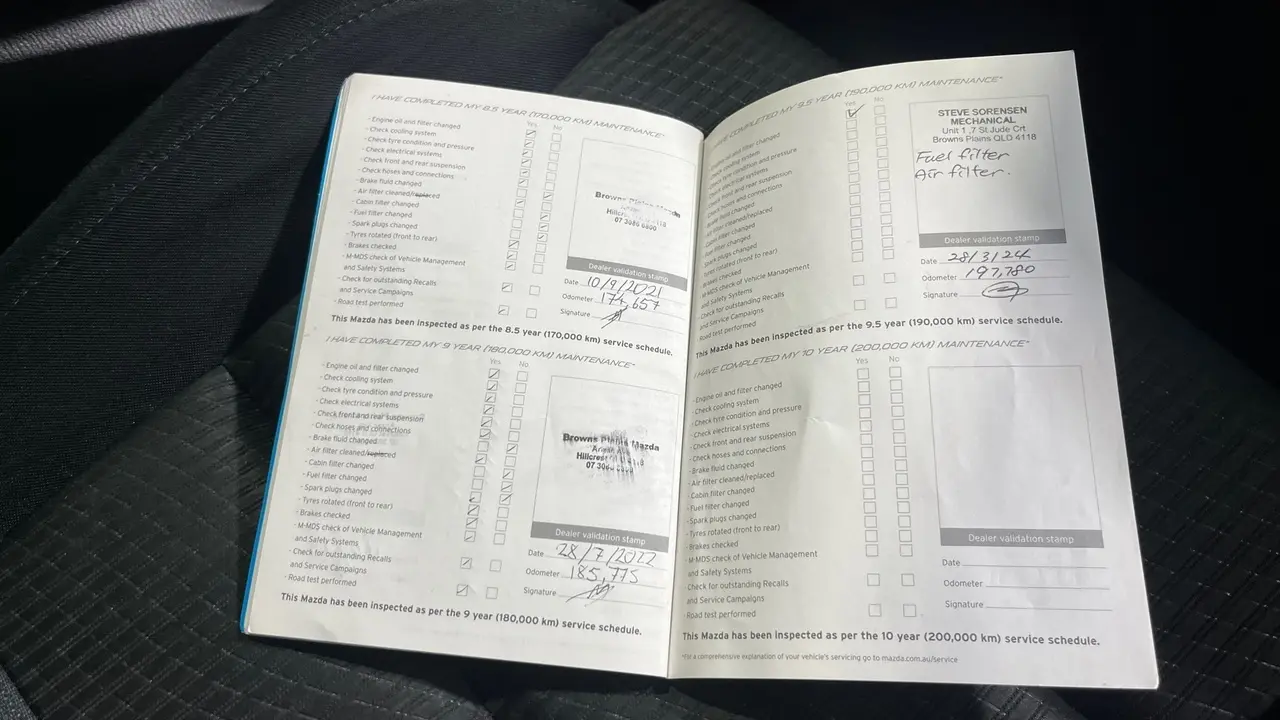 I HAVE COMPLETED MY 8.5 YEAR (170,000 KM) MAINTENANCE*
Yes No
· Engine oil and filter changed
· Check cooling system
· Check tyre condition and pressure
· Check electrical systems
· Check front and rear suspension
· Check hoses and connections
· Brake fluid changed
· Air filter cleaned/replaced
· Cabin filter changed
· Fuel filter changed
· Spark plugs changed
· Tyres rotated (front to rear)
· Brakes checked
· M-MDS check of Vehicle Management
and Safety Systems
· Check for outstanding Recalls
and Service Campaigns
· Road test performed
Browns Plains Mazda
07 3086 6800
Dealer validation stamp
Date 10/9/2021
Odometer 174,657
Signature
This Mazda has been inspected as per the 8.5 year (170,000 km) service schedule.
I HAVE COMPLETED MY 9 YEAR (180,000 KM) MAINTENANCE*
Yes No
· Engine oil and filter changed
· Check cooling system
· Check tyre condition and pressure
· Check electrical systems
· Check front and rear suspension
· Check hoses and connections
· Brake fluid changed
· Air filter cleaned/replaced
· Cabin filter changed
· Fuel filter changed
· Spark plugs changed
· Tyres rotated (front to rear)
· Brakes checked
· M-MDS check of Vehicle Management
and Safety Systems
· Check for outstanding Recalls
and Service Campaigns
· Road test performed
Browns Plains Mazda
Dealer validation stamp
Date 28/7/2022
Odometer 185,775
Signature
This Mazda has been inspected as per the 9 year (180,000 km) service schedule.
HAVE COMPLETED MY 9.5 YEAR (190,000 KM) MAINTENANCE*
Yes No
Engine oil and filter changed
Check cooling system
Check tyre condition and pressure
Check electrical systems
Check front and rear suspension
Check hoses and connections
Brake fluid changed
Air filter cleaned/replaced
Cabin filter changed
Fuel filter changed
Spark plugs changed
Tyres rotated (front to rear)
Brakes checked
M-MDS check of Vehicle Management
and Safety Systems
Check for outstanding Recalls
and Service Campaigns
Road test performed
STEVE SORENSEN
MECHANICAL
Unit 1 ,7 St Jude Crt
Browns Plains QLD 4118
Fuel filter
Air filter.
Dealer validation stamp
Date 28/3/24
Odometer 197,780
Signature
This Mazda has been inspected as per the 9.5 year (190,000 km) service schedule.
I HAVE COMPLETED MY 10 YEAR (200,000 KM) MAINTENANCE*
Yes No
· Engine oil and filter changed
· Check cooling system
· Check tyre condition and pressure
· Check electrical systems
· Check front and rear suspension
· Check hoses and connections
· Brake fluid changed
· Air filter cleaned/replaced
· Cabin filter changed
· Fuel filter changed
· Spark plugs changed
· Tyres rotated (front to rear)
· Brakes checked
· M-MDS check of Vehicle Management
and Safety Systems
Check for outstanding Recalls
and Service Campaigns
· Road test performed
Dealer validation stamp
Date
Odometer
Signature
This Mazda has been inspected as per the 10 year (200,000 km) service schedule.
*For a comprehensive explanation of your vehicle's servicing go to mazda.com.au/service